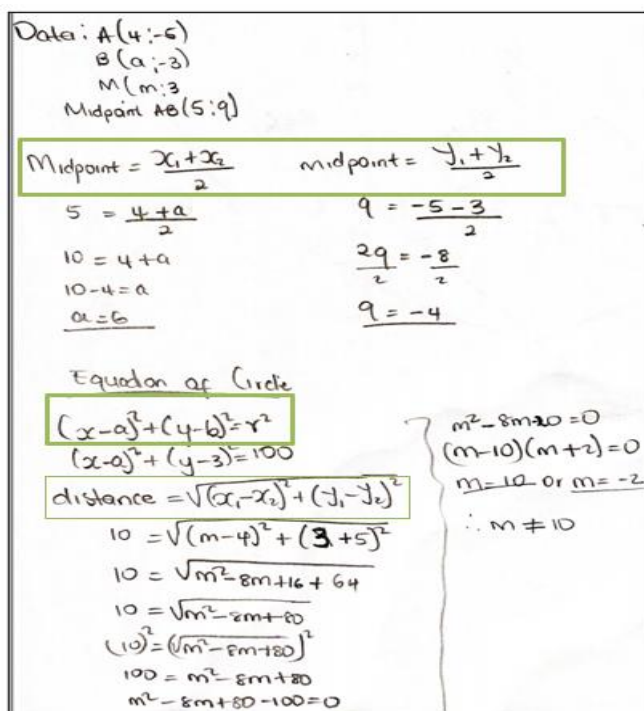 Data: A(4;-5)
B(a;-3)
M(m;3
Midpoint AB(5:q)
Midpoint = x₁+x₂/2
midpoint = y₁+y₂/2
5 = 4+a/2
10 = 4+a
10-4=a
a=6
q = -5-3/2
2q/2 = -8/2
q = -4
Equation of Circle
(x-a)²+(y-b)²=r²
(x-a)²+(y-3)²=100
distance = √(x₁-x₂)²+(y₁-y₂)²
10 = √(m-4)²+(3+5)²
10 = √m²-8m+16+64
10 = √m²-8m+80
(10)²=(√m²-8m+80)²
100 = m²-8m+80
m²-8m+80-100=0
m²-8m-20=0
(m-10)(m+2)=0
m=10 or m=-2
∴ m ≠ 10